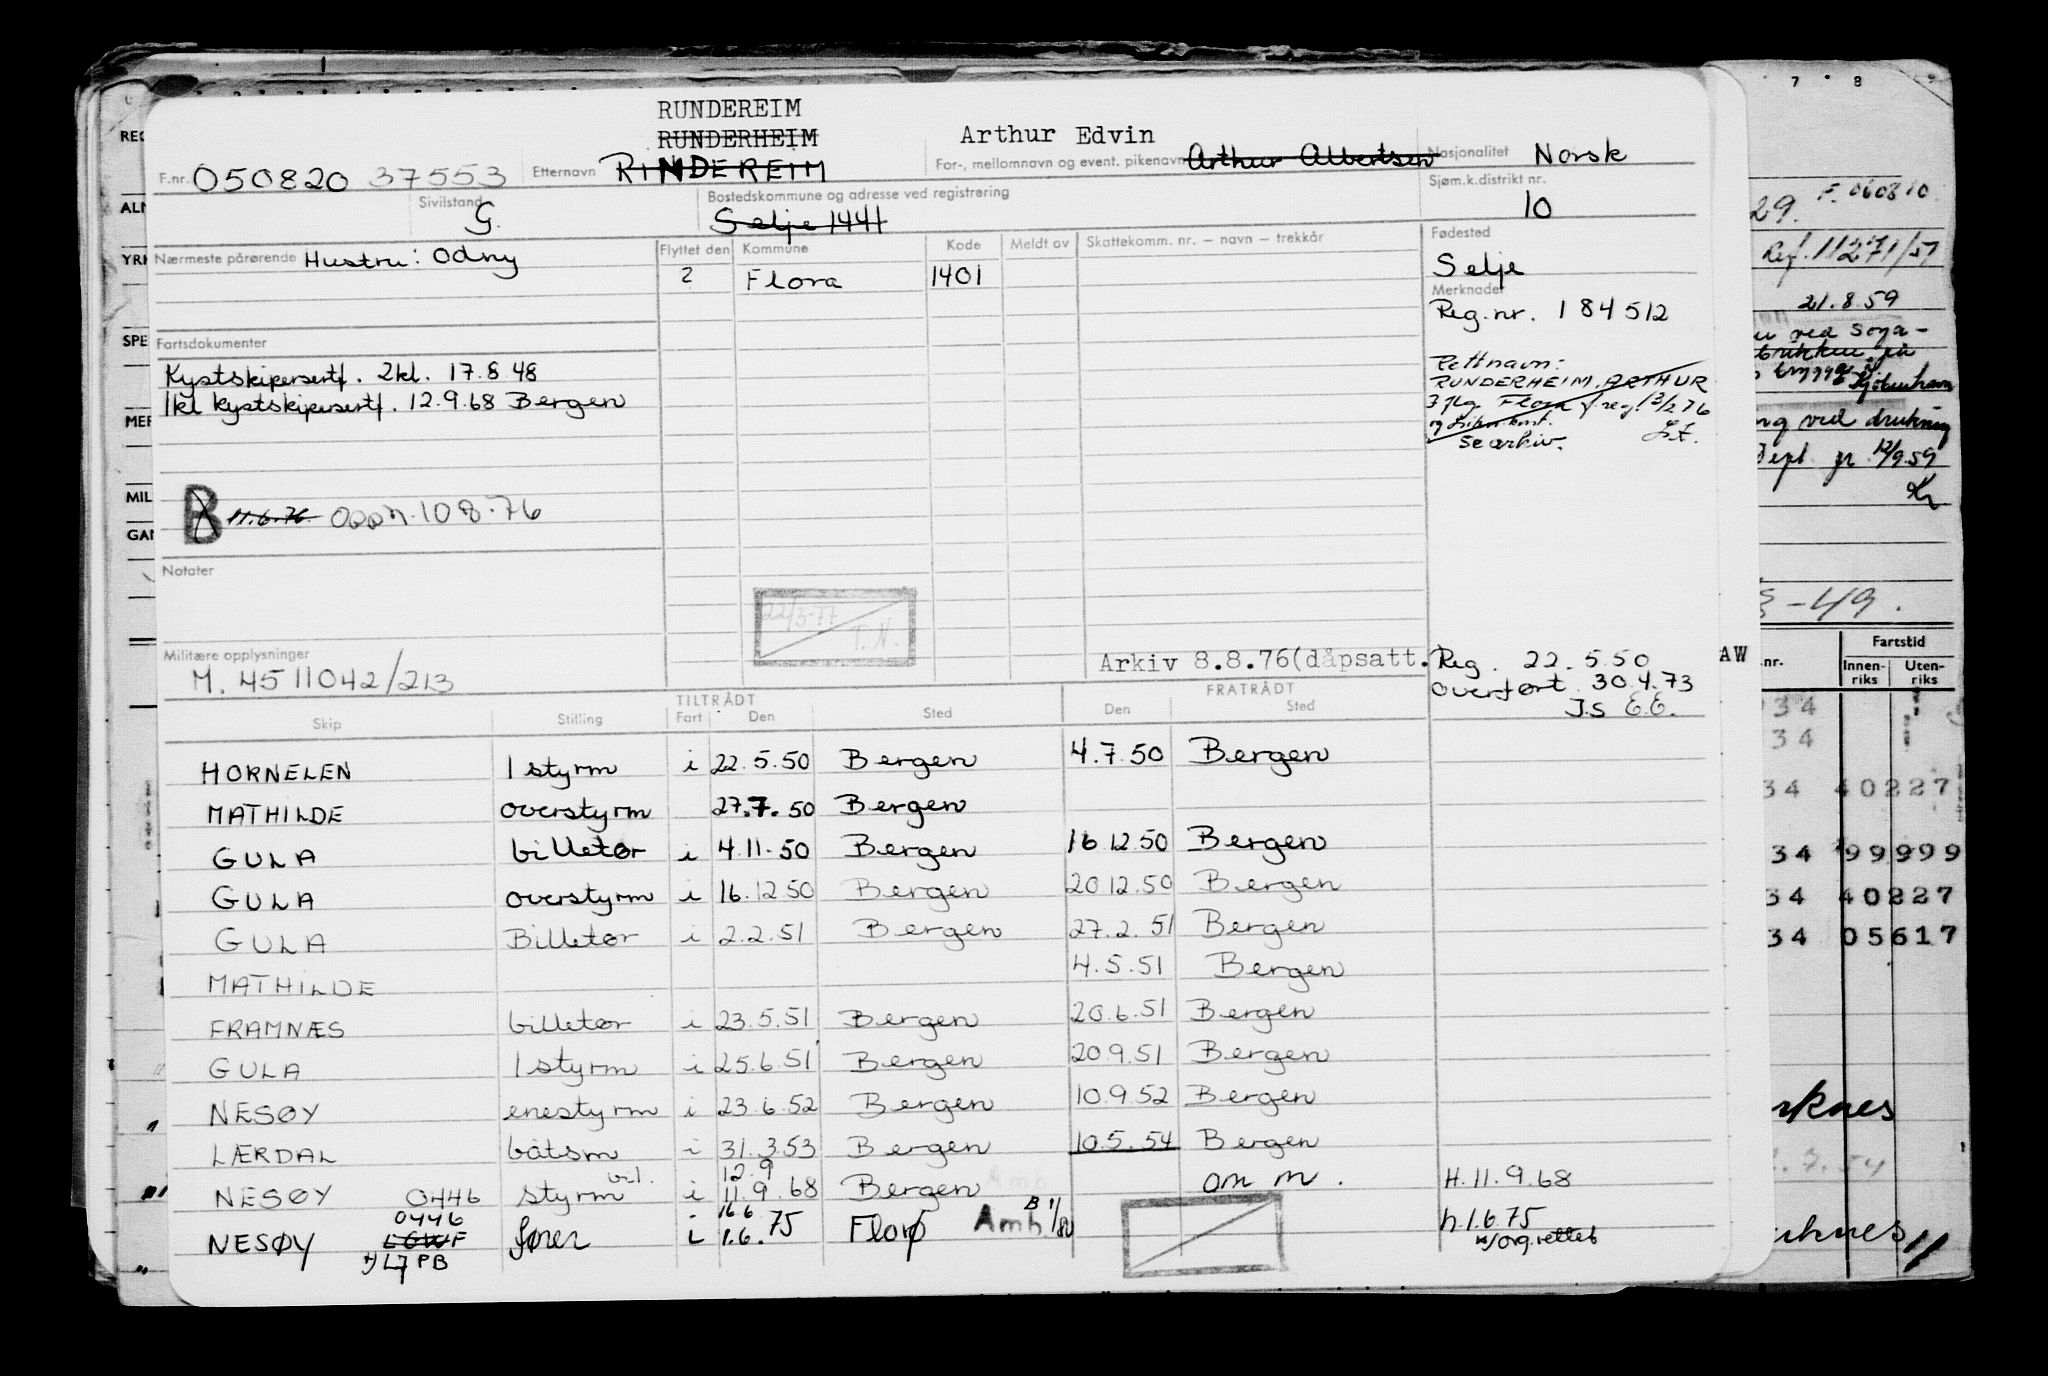 RUNDEREIM
RUNDERHEIM Arthur Edvin
F.nr. 050820 37553 Etternavn RINDEREIM For-, mellomnavn og event. pikenavn Arthur Albertsen Nasjonalitet Norsk
Sivilstand G. Bostedskommune og adresse ved registrering Selje 1441 Sjøm.k.distrikt nr. 10
Nærmeste pårørende Hustru: Odny Flyttet den Kommune Kode Meldt av Skattekomm. nr. – navn – trekkår Fødested
? Flora 1401 Selje
Merknader
Reg.nr. 184512
Fartsdokumenter
Kystskippersertf. 2kl. 17.8.48
1kl kystskippersertf. 12.9.68 Bergen
Rettnavn:
RUNDERHEIM, ARTHUR
se arkiv.
B 11.6.76 Oppn. 10 8.76
Notater
22/3-77
T.N.
Militære opplysninger
M. 4511042/213
Arkiv 8.8.76(dåpsatt. Reg. 22.5.50
Overført 30.4.73
J.S E.E.
TILTRÅDT FRATRÅDT
Skip Stilling Fart Den Sted Den Sted
HORNELEN 1 styrm i 22.5.50 Bergen 4.7.50 Bergen
MATHILDE overstyrm 27.7.50 Bergen
GULA billetør i 4.11.50 Bergen 16.12.50 Bergen
GULA overstyrm i 16.12.50 Bergen 20.12.50 Bergen
GULA Billetør i 2.2.51 Bergen 27.2.51 Bergen
MATHILDE 4.5.51 Bergen
FRAMNÆS billetør i 23.5.51 Bergen 20.6.51 Bergen
GULA 1 styrm i 25.6.51 Bergen 20.9.51 Bergen
NESØY enestyrm i 23.6.52 Bergen 10.9.52 Bergen
LÆRDAL båtsm i 31.3.53 Bergen 10.5.54 Bergen
12.9
NESØY 0446 styrm i 11.9.68 Bergen om m. H.11.9.68
0446 16.6
NESØY fører i 1.6.75 Florø Amh. h.1.6.75
LJPB
REG
ALM
YRK
SPE
MER
MIL
GAN
7 8
29. F. 060810
Ref. 11271/57
21.8.59
ved soya-
København
ved drukning
12/9.59
Kr
-49.
AW
nr. Fartstid
Innen-riks Uten-riks
34
34
34 40227
34 99999
34 40227
34 05617